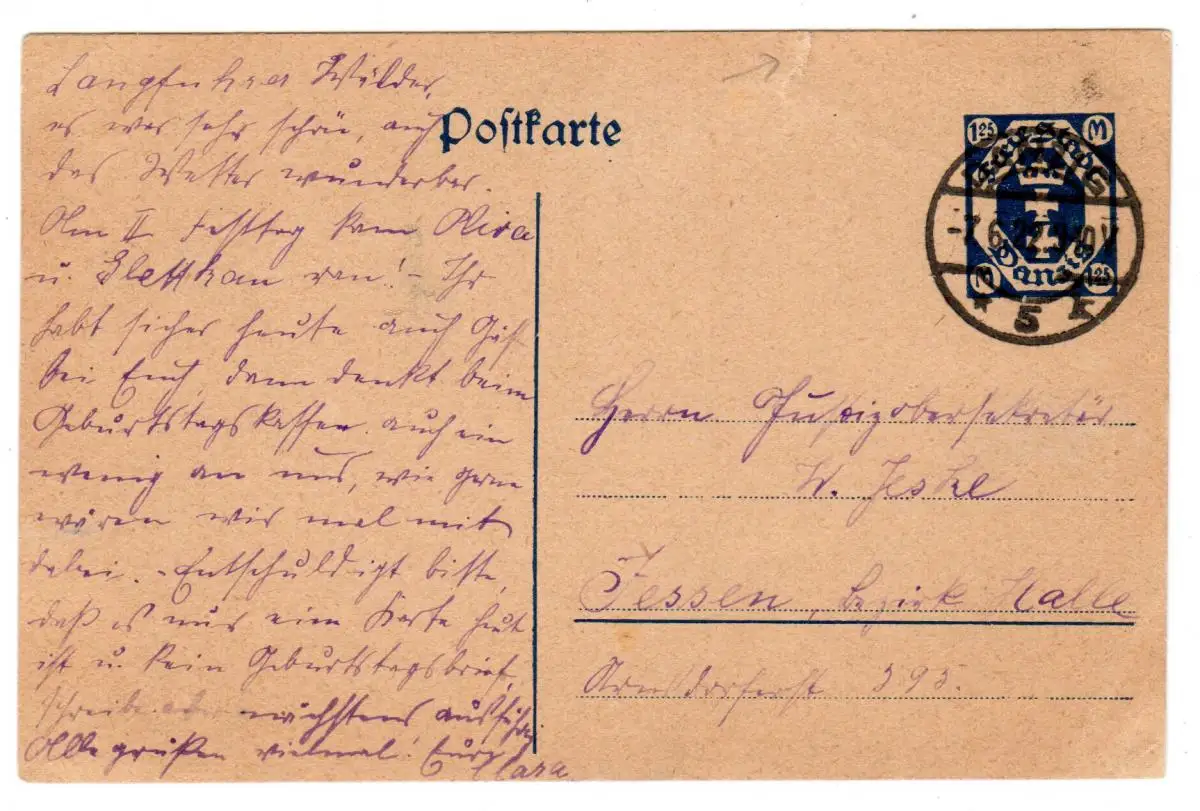 Langfuhrer Wälder,
es war sehr schön, auch
das Wetter wunderbar.
Am II Festtag kam Oliva
u. Glettkau ran! - Ihr
habt sicher heute auch
bei Euch, dann denkt beim
Geburtstagskaffee auch ein
wenig an uns, wie gerne
wären wir mal mit
dabei. - Entschuldigt bitte,
daß es nur eine Karte heut
ist u. kein Geburtstagsbrief,
schreibe aber nächstens ausführl.
Alle grüßen vielmal! Eure
Clara
Postkarte
1.25 M
Danzig
7.6.22
5
M 1.25
Herrn Justizobersekretär
W. Jeske
Jessen, bezirk Halle
Arnsdorferst 395.